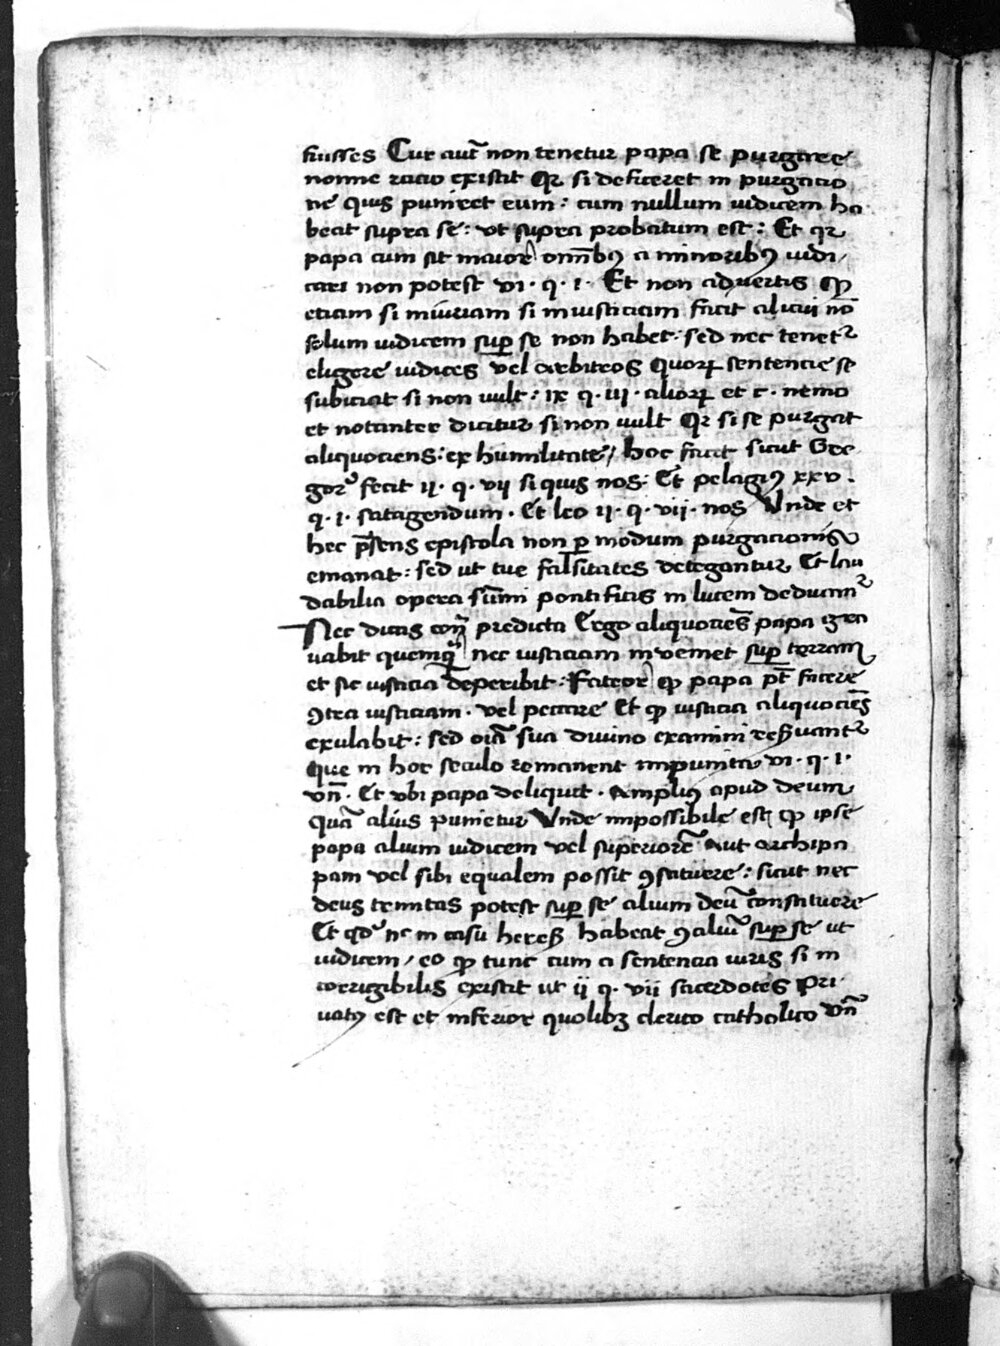 fuisses Cur aut̄ non tenetur papa se purgare
nonne racio existit Qꝛ si deficeret in purgacio
ne quis puniret eum : cum nullum iudicem ha
beat supra se : ut supra probatum est : Et qꝛ
papa cum sit maior omībꝯ a minoribꝯ iudi
cari non potest vi · q · i · Et non advertis qꝫ
etiam si iniuriam si iniusticiam facit alicui nō
solum iudicem sup̄ se non habet : sed nec tenetᷣ
eligere iudices vel arbitros quoꝝ sentencie se
subiciat si non uult : ix q · iii · alioꝝ et c · nemo
et notanter dicitur si non uult Qꝛ si se purgat
aliquociens : ex humilitate / hoc facit sicut Gre
gorꝰ fecit ii · q · vii si quis nos : Et pelagiꝯ xxv ·
q · i · satagendum · Et leo ii · q · vii · nos Unde et
hec p̄sens epistola non ꝑ modum purgacionis
emanat : sed ut tue falsitates detegantur Et lau
dabilia opera sūmi pontificis in lucem deducantᷣ
Nec dicas ꝯtra predicta Ergo aliquociēs papa gra
uabit quemqᷓ nec iusticiam inveniet sup̄ terram
et sic iusticia deperibit : Fateor qꝫ papa pt̄ facere
ꝯtra iusticiam · vel peccare Et qꝫ iusticia aliquociēs
exulabit : sed oīa sua divino examini reẞuantᷣ
Que in hoc seculo remanent impunita vi · q · i ·
vñ · Et ubi papa deliquit · Ampliꝯ apud deum
quā alius punietur Unde impossibile est qꝫ ipse
papa alium iudicem vel superiorē Aut archipa
pam vel sibi equalem possit ꝯstituere : sicut nec
deus trinitas potest sup̄ se alium deū constituere
Et in casu hereẞ habeat aliū sup̄ se ut
iudicem / eo qꝫ tunc cum a sentencia iuris si in
corrigibilis existit ut ii q · vii sacerdotes Pri
uatꝯ est et inferior quolibꝫ clerico catholico vñ